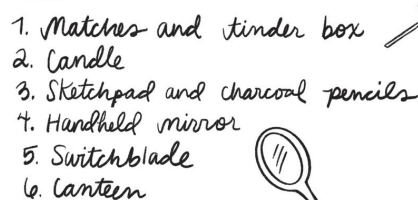 1. Matches and tinder box
2. Candle
3. Sketchpad and charcoal pencils
4. Handheld mirror
5. Switchblade
6. Canteen